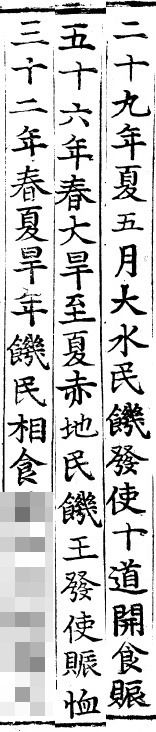 二十九年夏五月大水民饑發使十道開食賑
五十六年春大旱至夏赤地民饑王發使賑恤
三十二年春夏旱年饑民相食